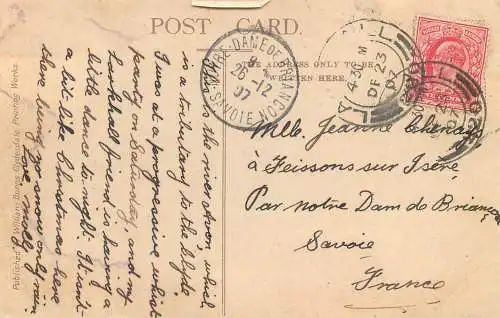 POST CARD.
THE ADDRESS ONLY TO BE
WRITTEN HERE.
This is the river Avon which
is a tributary to the Clyde.
I was at a progressive whist
party on Saturday, and my
Larkhall friend is having a
little dance to-night. It isn't
a bit like Christmas here
there being no snow only rain
love, Molly.
Mlle. Jeanne
à Feissons sur Isère
Par notre Dam de Briançon
Savoie
France
NOTRE-DAME DE BRIANCON
SAVOIE
26-12
07
4-30 M
DE 23
07
Published by William Barns, Clydesdale Printing Works.